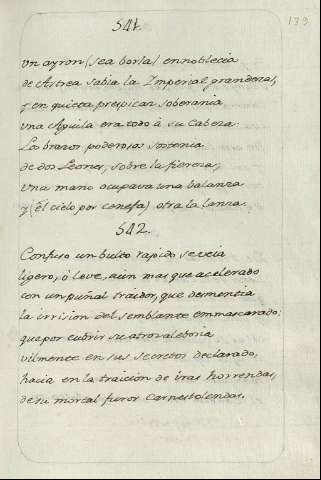 541.
139
Un ayron (sea borla) ennoblecia
de Astrea sabia la Imperial grandeza,
y en quieta perspicaz soberania
una Aguila era todo à su Cabeza.
Los brazos poderosos sostenia
de dos Leones, sobre la fiereza,
una mano ocupava una balanza
y (el cielo por cenefa) otra la lanza.
542.
Confuso un bulto rapido se veia
ligero, ò leve, aun mas que acelerado
con un puñal traidor, que desmentia
la irrision del semblante emmascarado:
que por cubrir su atroz aleboria
vilmente en sus secretos declarado,
hacia en la traicion de iras horrendas,
de su mortal furor Carnestolendas.